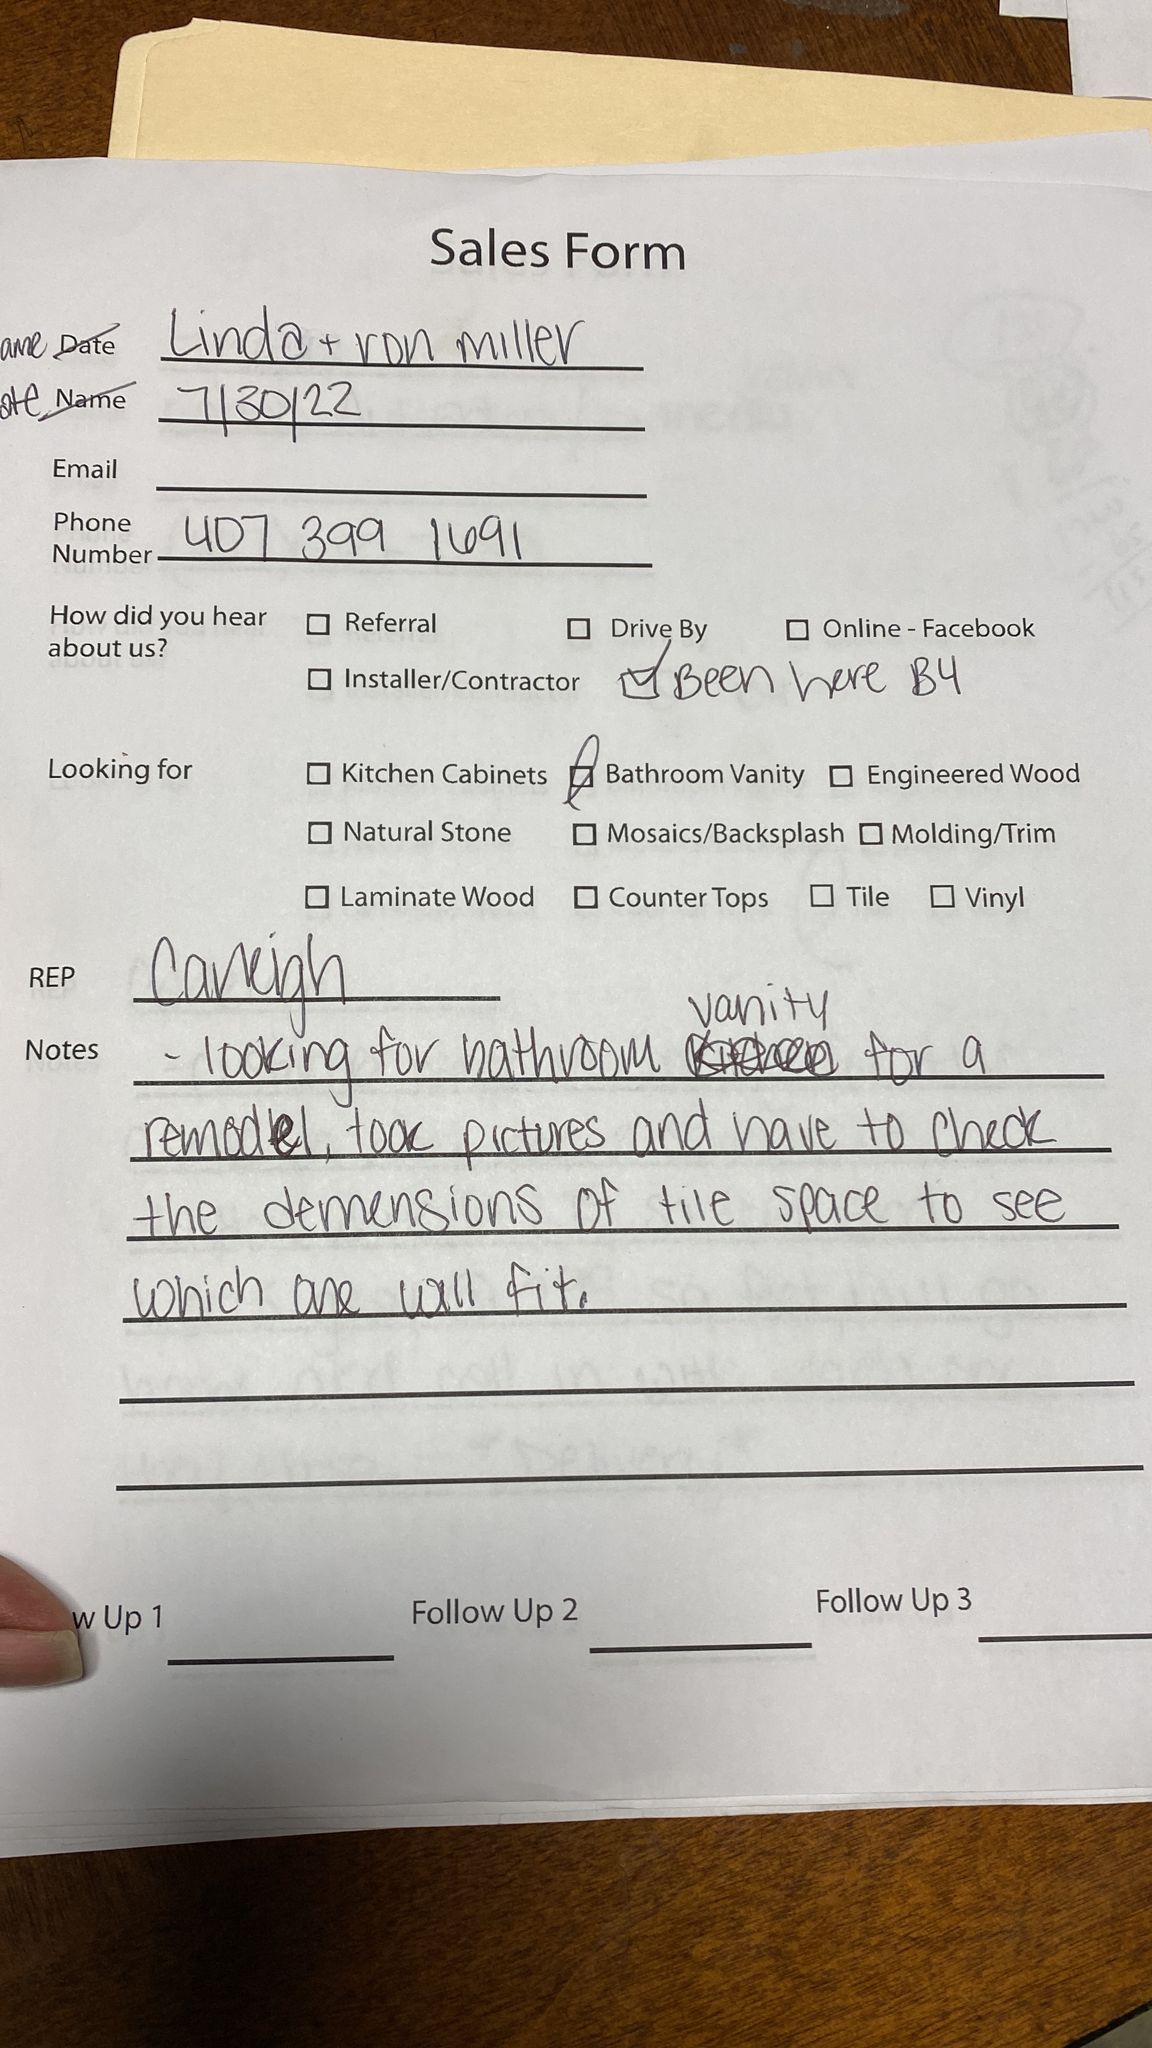 Sales Form
ame Date Linda + ron miller
ate Name 7/30/22
Email
Phone
Number 407 399 1691
How did you hear
about us?
Referral Drive By Online - Facebook
Installer/Contractor Been here B4
Looking for Kitchen Cabinets Bathroom Vanity Engineered Wood
Natural Stone Mosaics/Backsplash Molding/Trim
Laminate Wood Counter Tops Tile Vinyl
REP Carleigh
vanity
Notes - looking for bathroom for a
remodel, took pictures and have to check
the demensions of tile space to see
which one will fit.
w Up 1 Follow Up 2 Follow Up 3